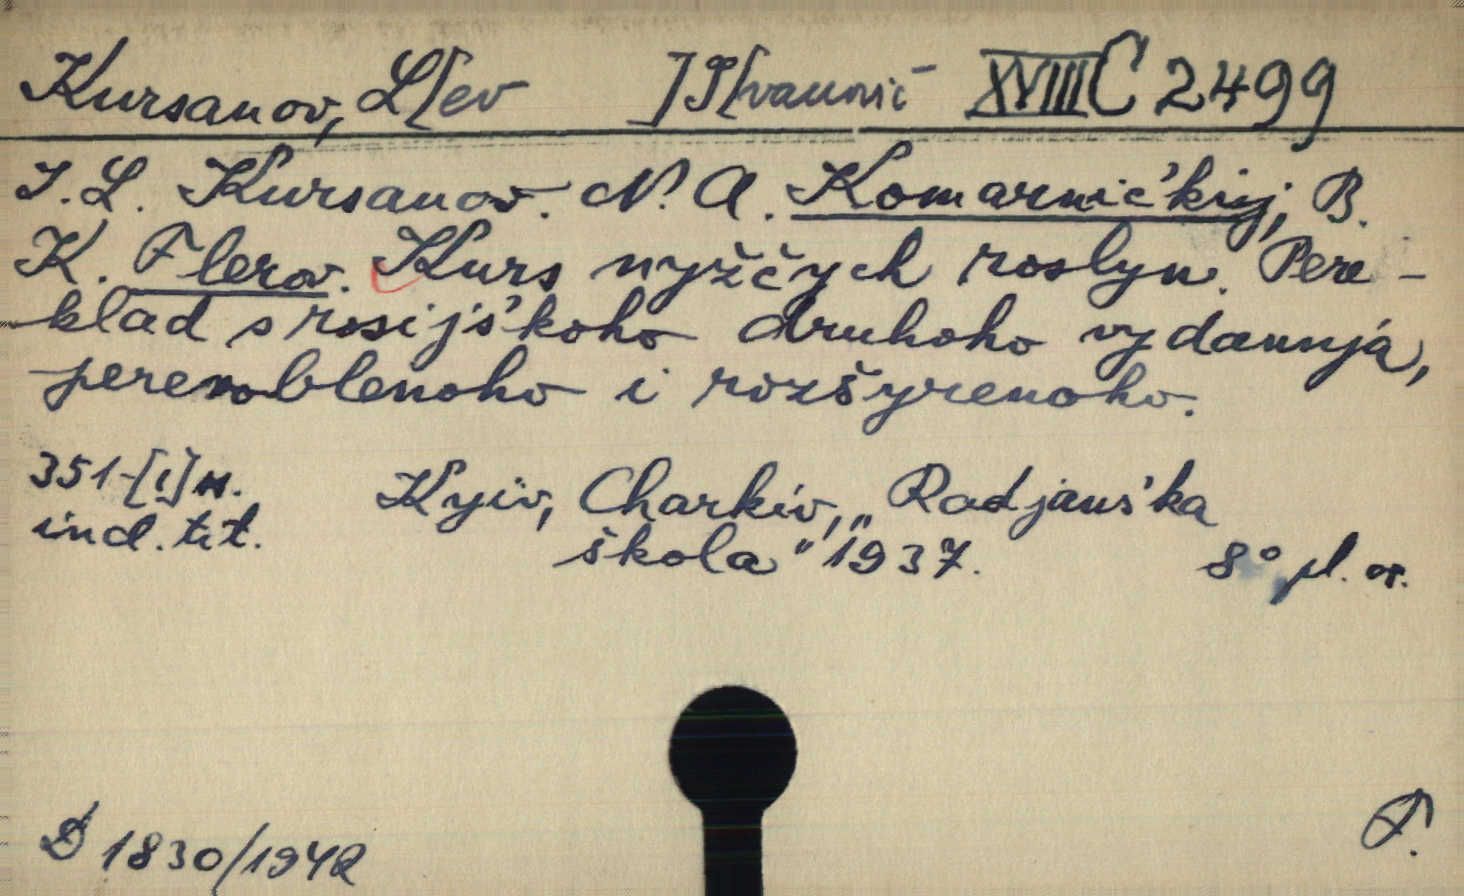 Kursanov, L[ev ] I[vanovič XVIII C 2499
I. L. Kursanov. N. A. Komarnic'kij, B.
K. Flerov. Kurs nyžčych roslyn. Pere-
klad s rosijs'koho druhoho vydannja,
pereroblenoho i rozšyrenoho.
351-[1] s.
ind. tit.
Kyiv, Charkiv, „Radjans'ka
škola" 1937.
8° pl. or.
D 1830/1942
P.